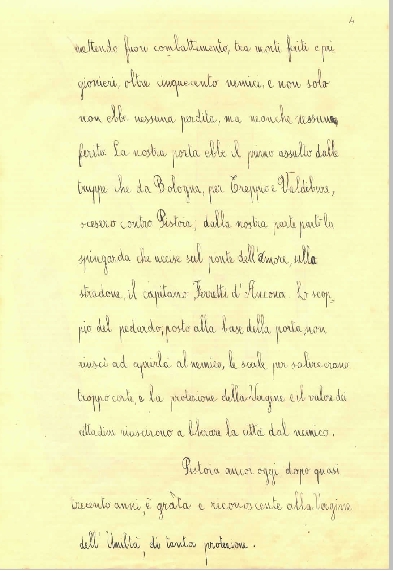 4
mettendo fuori combattimento, tra morti feriti e pri
gionieri, oltre cinquecento nemici, e non solo
non ebbe nessuna perdita, ma neanche nessuna
ferita. La nostra porta ebbe il primo assalto dalle
truppe che da Bologna, per Treppio e Valdibure,
scesero contro Pistoia, dalla nostra parte partì la
spingarda che uccise sul ponte dell'Amore, sullo
stradone, il capitano Ferretti d'Ancona. Lo scop
pio del petardo, posto alla base della porta, non
riuscì ad aprirla al nemico, le scale per salire erano
troppo corte, e la protezione della Vergine e il valore dei
cittadini riuscirono a liberare la città dal nemico.
Pistoia ancor oggi dopo quasi
trecento anni, è grata e reconoscente alla Vergine
dell'Umiltà, di tanta protezione.